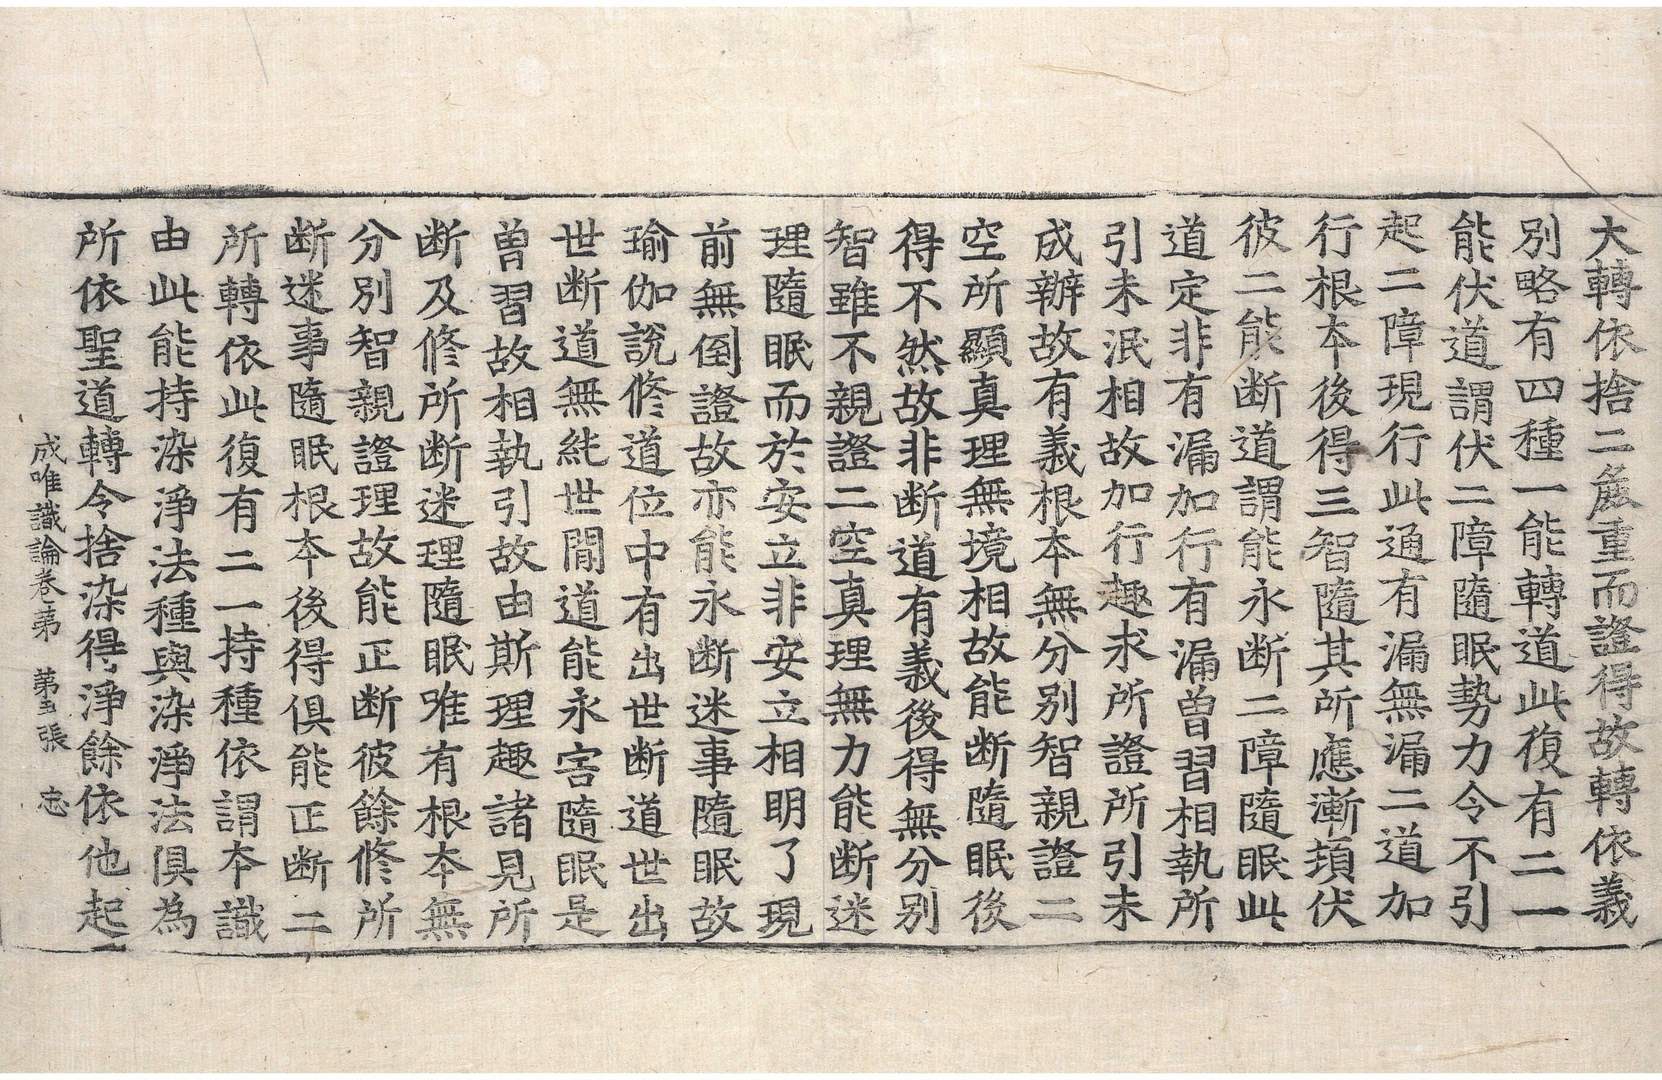 大轉依捨二麁重而證得故轉依義
別略有四種一能轉道此復有二一
能伏道謂伏二障隨眠勢力令不引
起二障現行此通有漏無漏二道加
行根本後得三智隨其所應漸頓伏
彼二能断道謂能永断二障隨眠此
道定非有漏加行有漏曽習相執所
引未泯相故加行趣求所證所引未
成辦故有義根本無分別智親證二
空所顯真理無境相故能断隨眠後
得不然故非断道有義後得無分別
智雖不親證二空真理無力能断迷
理隨眠而於安立非安立相明了現
前無倒證故亦能永断迷事隨眠故
瑜伽說修道位中有出世断道世出
世断道無純世間道能永害隨眠是
曽習故相執引故由斯理趣諸見所
断及修所断迷理隨眠唯有根本無
分別智親證理故能正断彼餘修所
断迷事隨眠根本後得俱能正断二
所轉依此復有二一持種依謂本識
由此能持染淨法種與染淨法俱為
所依聖道轉令捨染得淨餘依他起
成唯識論卷第　第　張　忠